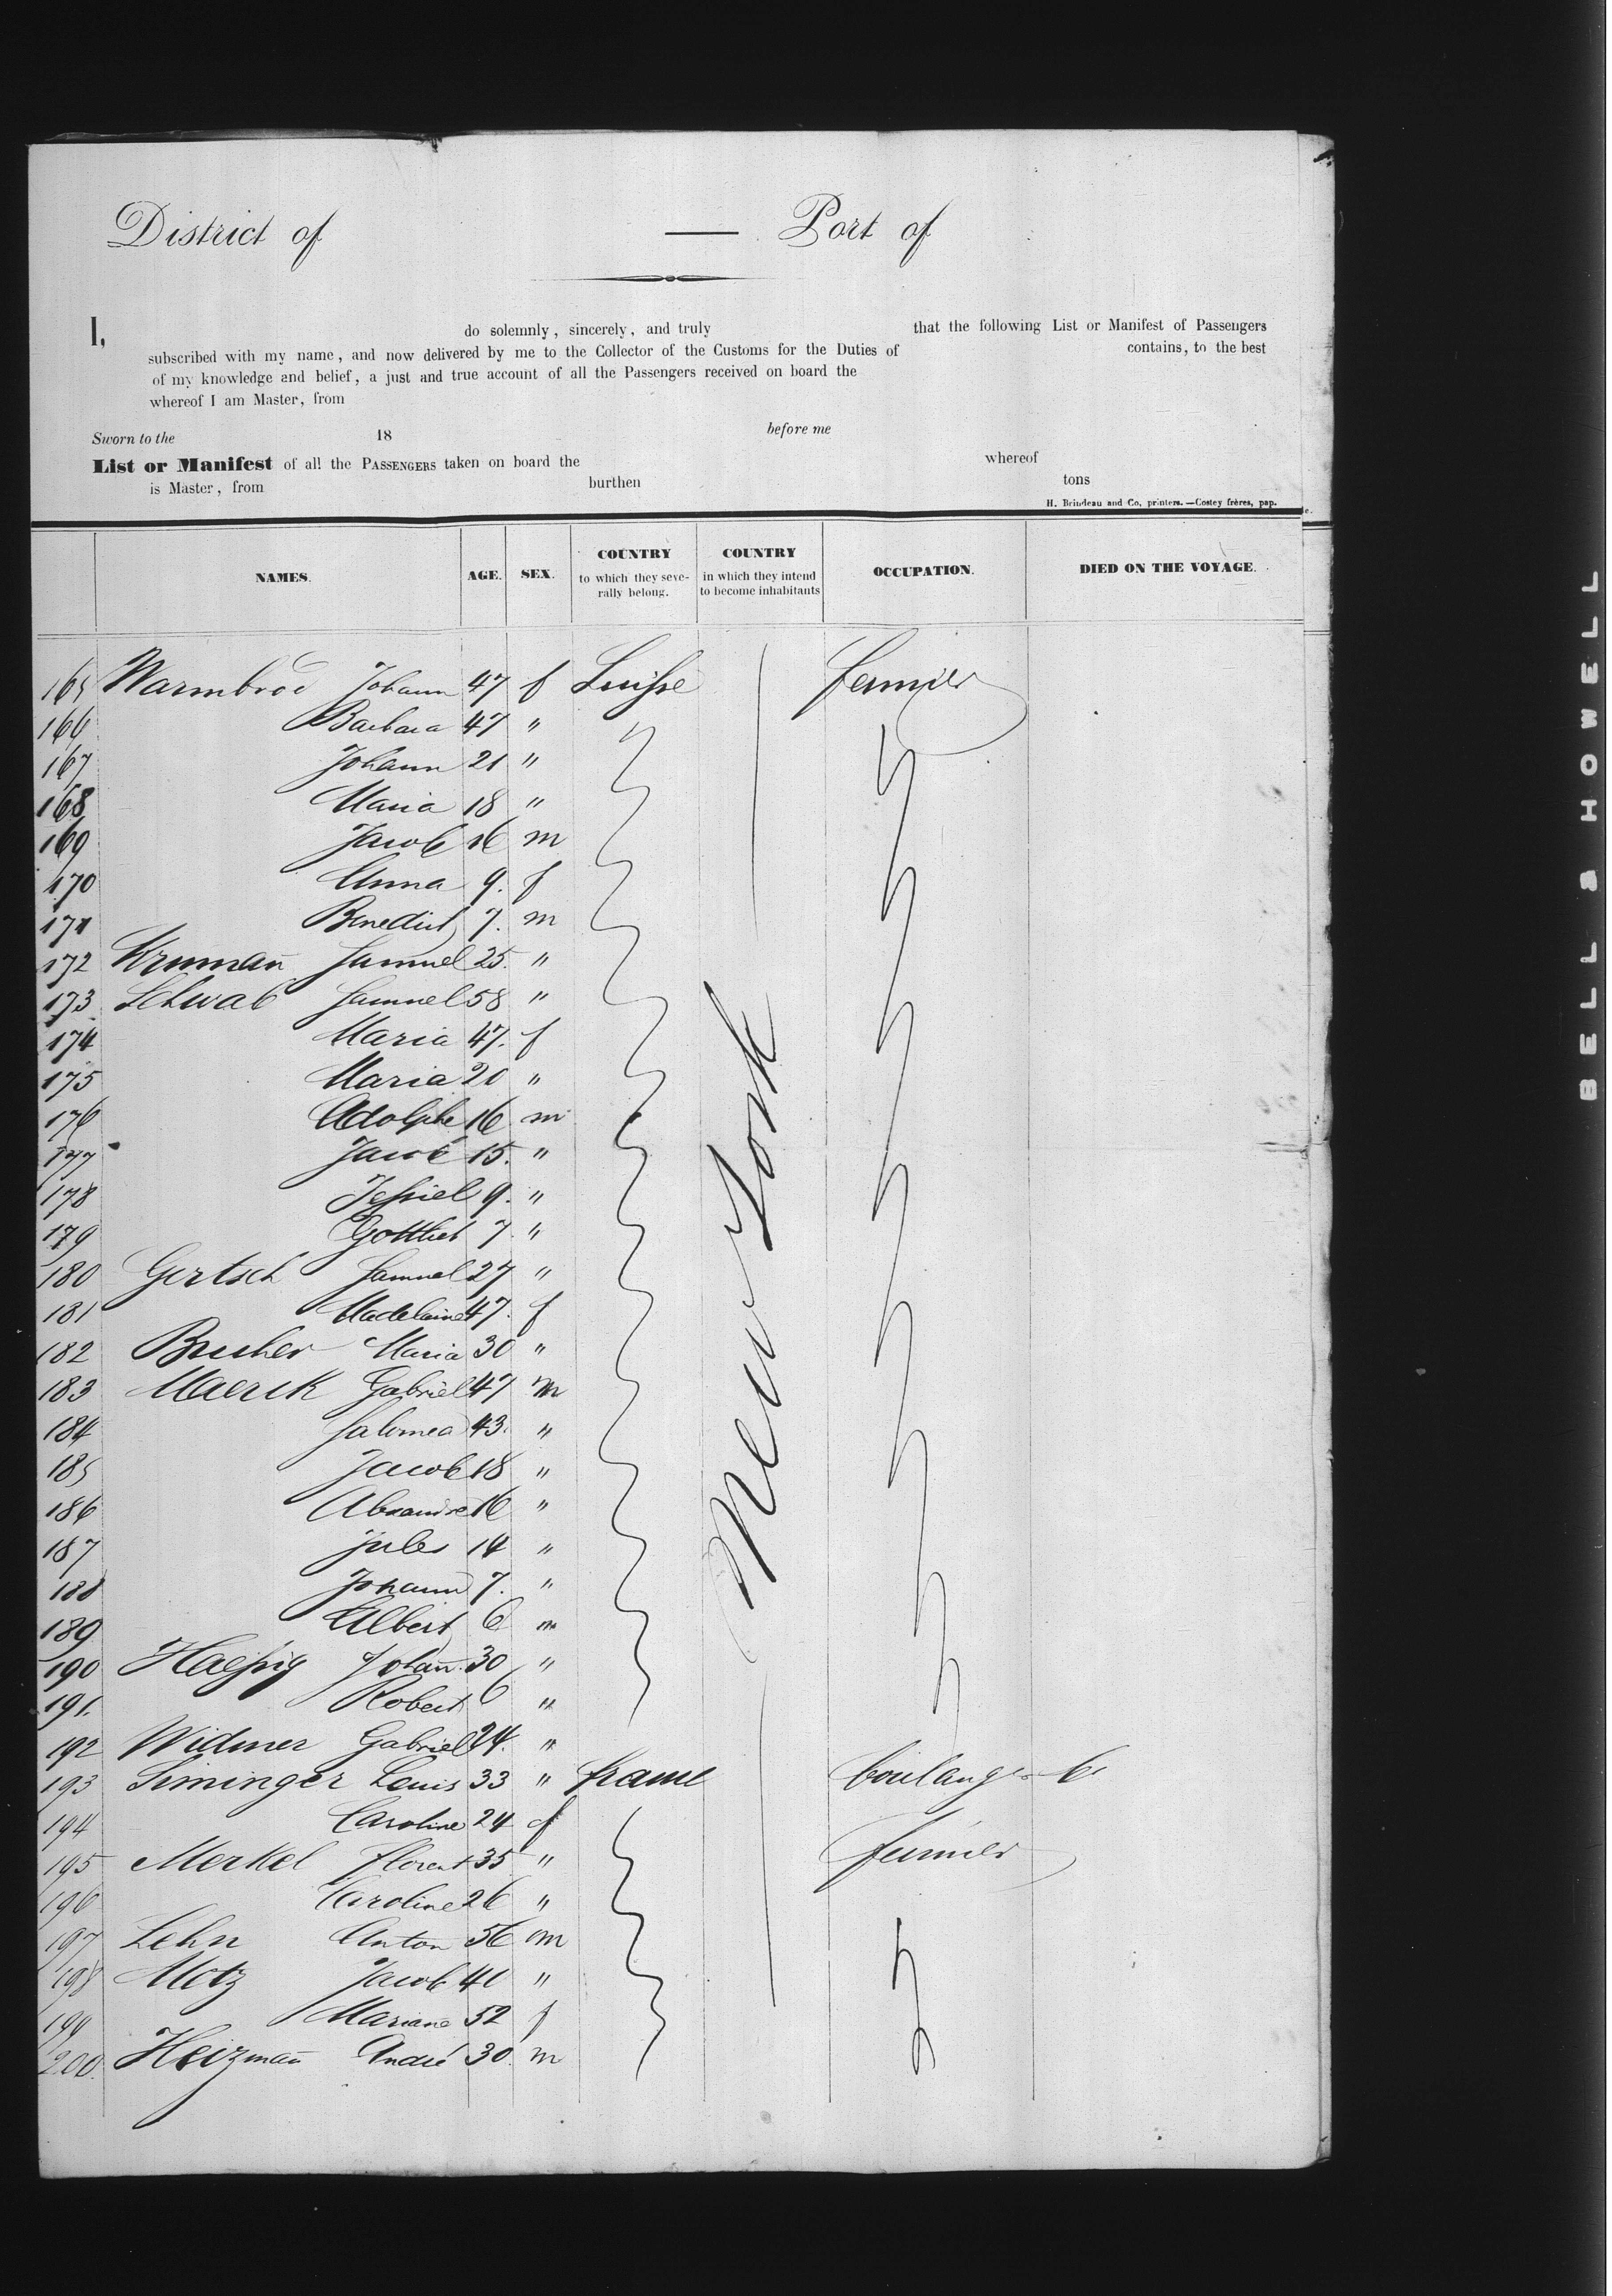 District of — Port of
I, do solemnly, sincerely, and truly that the following List or Manifest of Passengers
subscribed with my name, and now delivered by me to the Collector of the Customs for the Duties of contains, to the best
of my knowledge and belief, a just and true account of all the Passengers received on board the
whereof I am Master, from
Sworn to the 18 before me
List or Manifest of all the PASSENGERS taken on board the whereof
is Master, from burthen tons
H. Brindeau and Co, printers. —Costey frères, pap.
NAMES. AGE. SEX. COUNTRY to which they seve-rally belong. COUNTRY in which they intend to become inhabitants OCCUPATION. DIED ON THE VOYAGE.
165 Warmbrod Johann 47 f Suisse fermier
166 Barbara 47 "
167 Johann 21 "
168 Maria 18 "
169 Jacob 16 m
170 Anna 9. f
171 Benedict 7. m
172 Kruman̄ Samuel 25. "
173 Schwab Samuel 58 "
174 Maria 47. f
175 Maria 20 "
176 Adolphe 16 m
177 Jacob 15. "
178 9. "
179 Gottlieb 7. "
180 Gertsch Samuel 27 "
181 Madelaine 47. f
182 Brucher Maria 30 "
183 Maerck Gabriel 47 m
184 Salomea 43. "
185 Jacob 18 "
186 Alexandre 16 "
187 Jules 14 "
188 Johann 7. "
189 Albert 6 m
190 Haessig Johan̄. 30 "
191. Robert 6 "
192 Widmer Gabriel 24. "
193 Siminger Louis 33 " France boulanger
194 Caroline 24 f
195 Merkel Florent 35 " fermier
196 Caroline 26 "
197 Lehn Anton 56 m
198 Motz Jacob 40 "
199 Mariane 52 f
200. Heizman̄ André 30. m
New York
BELL & HOWELL